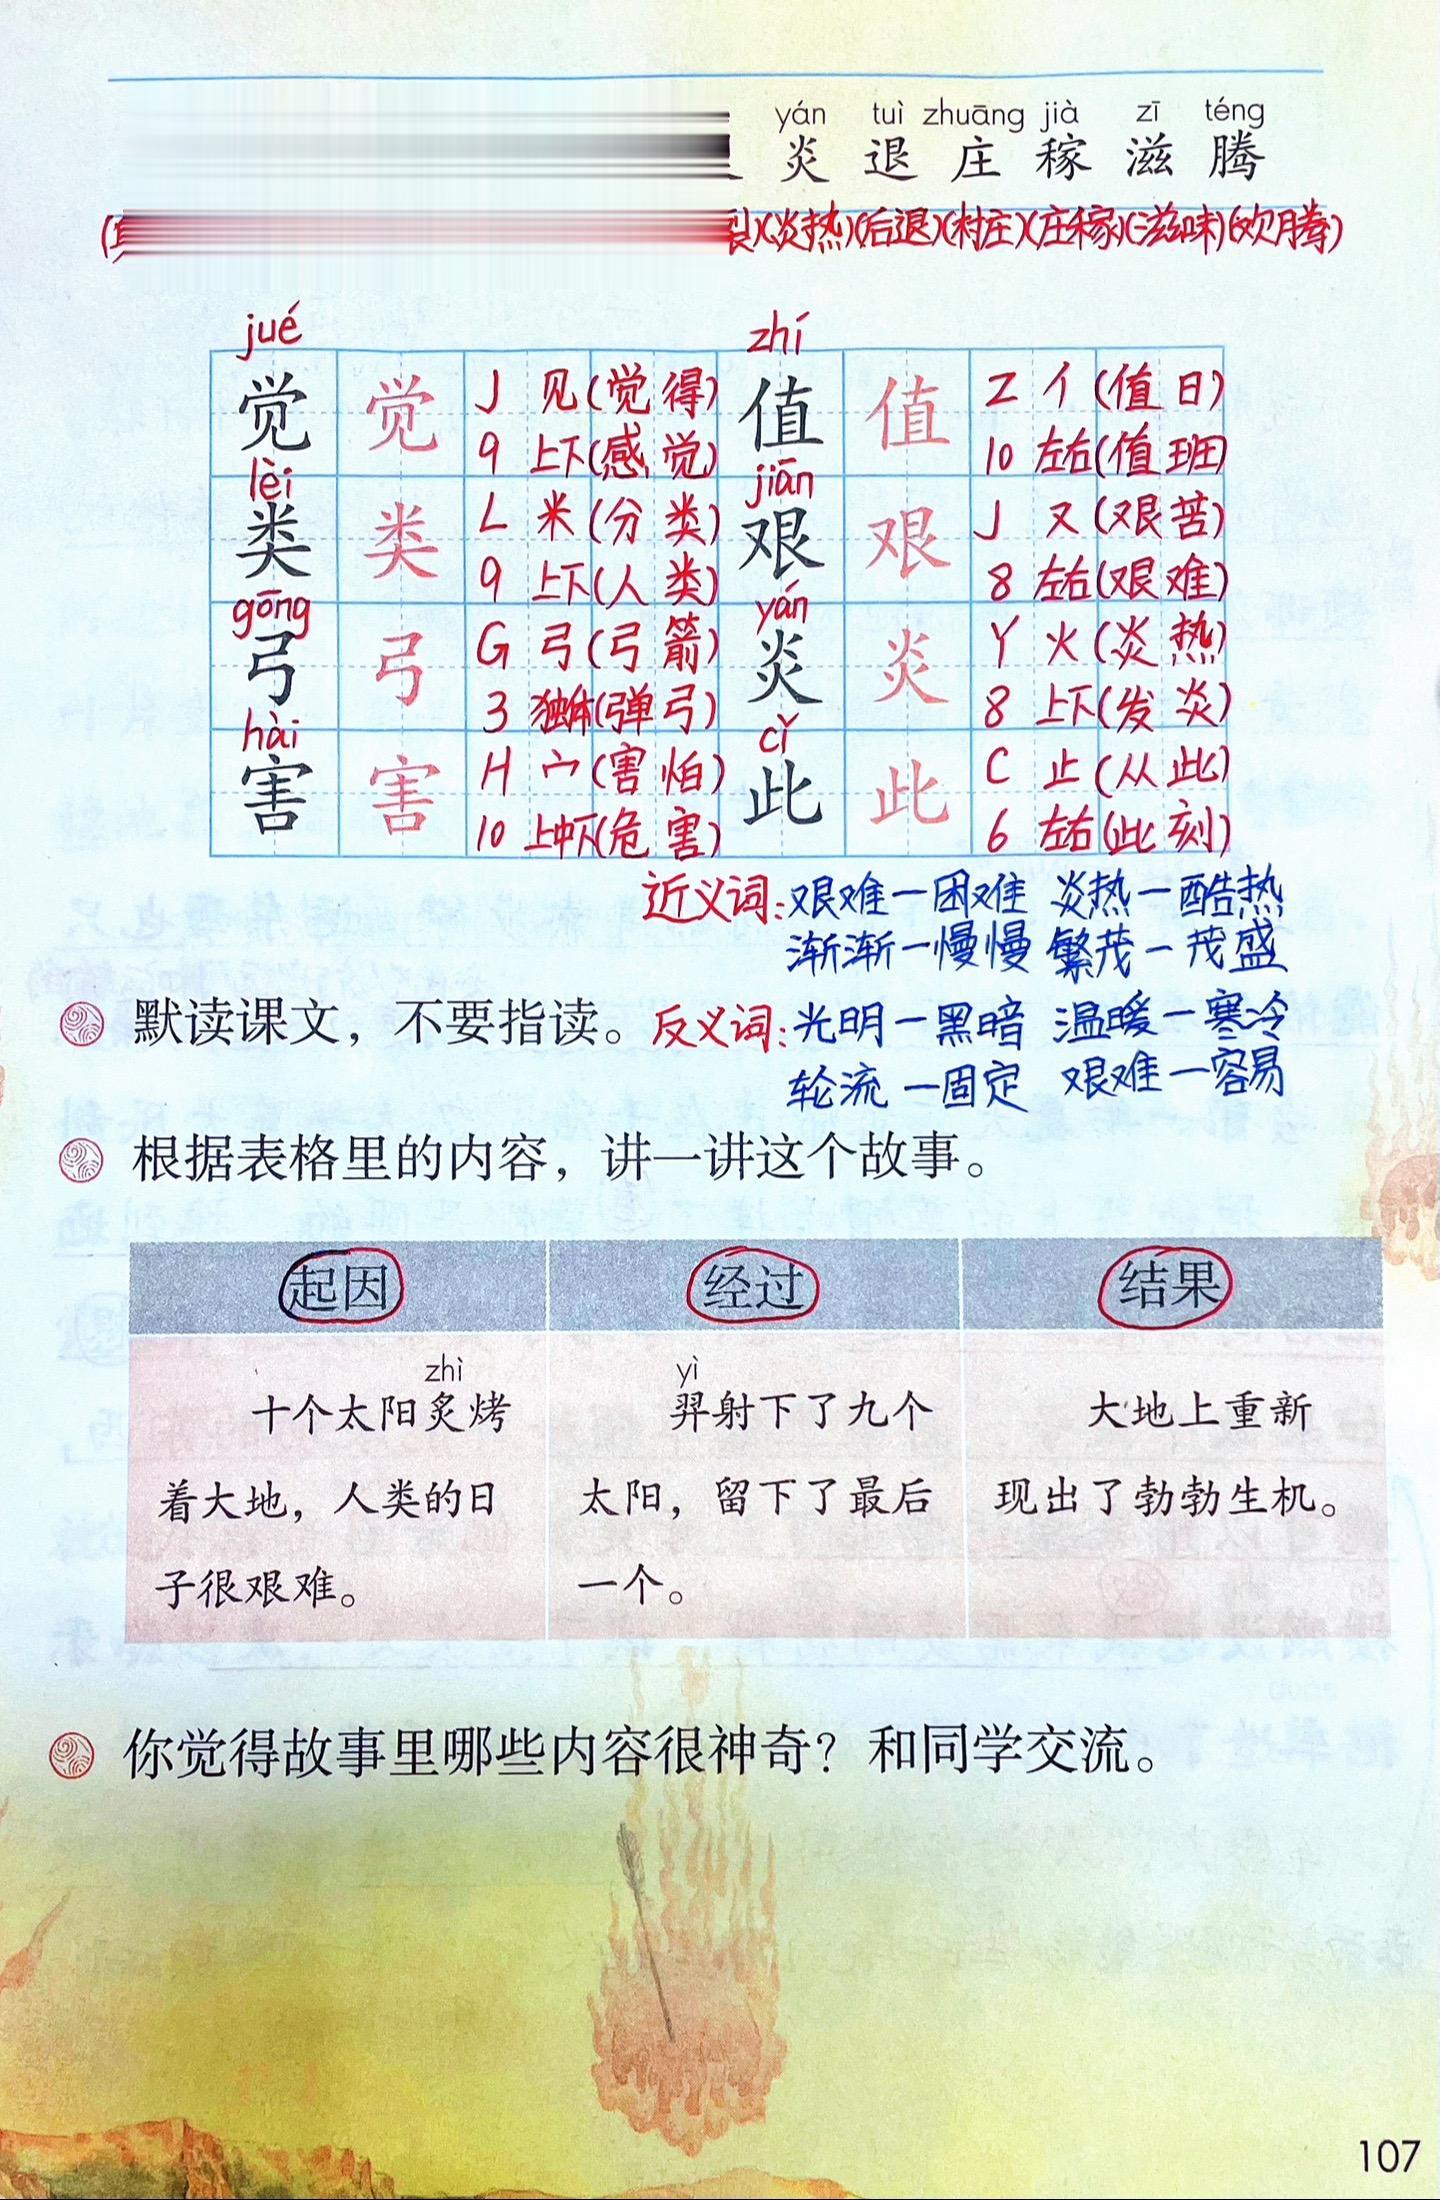 yán tuì zhuāng jià zī téng
炎 退 庄 稼 滋 腾
裂)(炎热)(后退)(村庄)(庄稼)(滋味)(欢腾)
jué zhí
觉 觉 J 见(觉得) 值 值 Z 亻(值日)
9 上下(感觉) 10 左右(值班)
lèi jiān
类 类 L 米(分类) 艰 艰 J 又(艰苦)
9 上下(人类) 8 左右(艰难)
gōng yán
弓 弓 G 弓(弓箭) 炎 炎 Y 火(炎热)
3 独体(弹弓) 8 上下(发炎)
hài cǐ
害 害 H 宀(害怕) 此 此 C 止(从此)
10 上中下(危害) 6 左右(此刻)
近义词:艰难—困难 炎热—酷热
渐渐—慢慢 繁茂—茂盛
默读课文，不要指读。
反义词:光明—黑暗 温暖—寒冷
轮流—固定 艰难—容易
根据表格里的内容，讲一讲这个故事。
起因 经过 结果
zhì
十个太阳炙烤
着大地，人类的日
子很艰难。
yì
羿射下了九个
太阳，留下了最后
一个。
大地上重新
现出了勃勃生机。
你觉得故事里哪些内容很神奇？和同学交流。
107